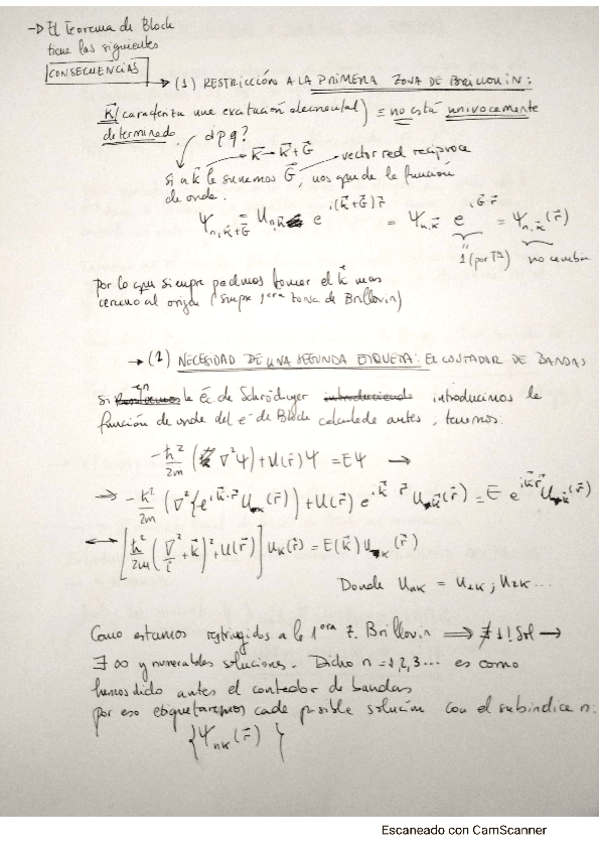 → El Teorema de Bloch
tiene las siguientes
CONSECUENCIAS
→ (1) RESTRICCIÓN A LA PRIMERA ZONA DE BRILLOUIN:
K⃗ (caracteriza una excitación elemental) = no está unívocamente
determinado. ¿ d p q?
K⃗ → K⃗ + G⃗ → vector red recíproca
si a k⃗ le sumamos G⃗, nos queda la función
de onda.
Ψ_{n,K⃗+G⃗} = U_{n,K⃗} e^{i(K⃗+G⃗)r⃗} = Ψ_{n,K⃗} e^{iG⃗·r⃗} = Ψ_{n,K⃗}(r⃗)
1 (por Tª) no cambia
por lo que siempre podemos tomar el k⃗ mas
cercano al origen (siempre 1era Zona de Brillovin)
→ (2) NECESIDAD DE UNA SEGUNDA ETIQUETA: EL CONTADOR DE BANDAS
Si en la Ec. de Schrödinger introducimos la
función de onda del e⁻ de Bloch calculada antes, tenemos:
-ħ²/2m (∇²Ψ) + U(r⃗)Ψ = EΨ →
⇒ -ħ²/2m (∇²{e^{ik⃗·r⃗} U_k(r⃗)}) + U(r⃗) e^{ik⃗·r⃗} U_k(r⃗) = E e^{ik⃗r⃗} U_k(r⃗)
↔ [ħ²/2m (∇/i + k⃗)² + U(r⃗)] U_K(r⃗) = E(k⃗) U_K(r⃗)
Donde U_{nK} = U_{1K}, U_{2K} ...
Como estamos restringidos a la 1era Z. Brillovin ⇒ ∄ 1! Sol →
∃ ∞ y numerables soluciones. Dicho n = 1,2,3... es como
hemos dido antes el contador de bandas
por eso etiquetaremos cada posible solución con el subíndice n.
{Ψ_{nk}(r⃗)}
Escaneado con CamScanner